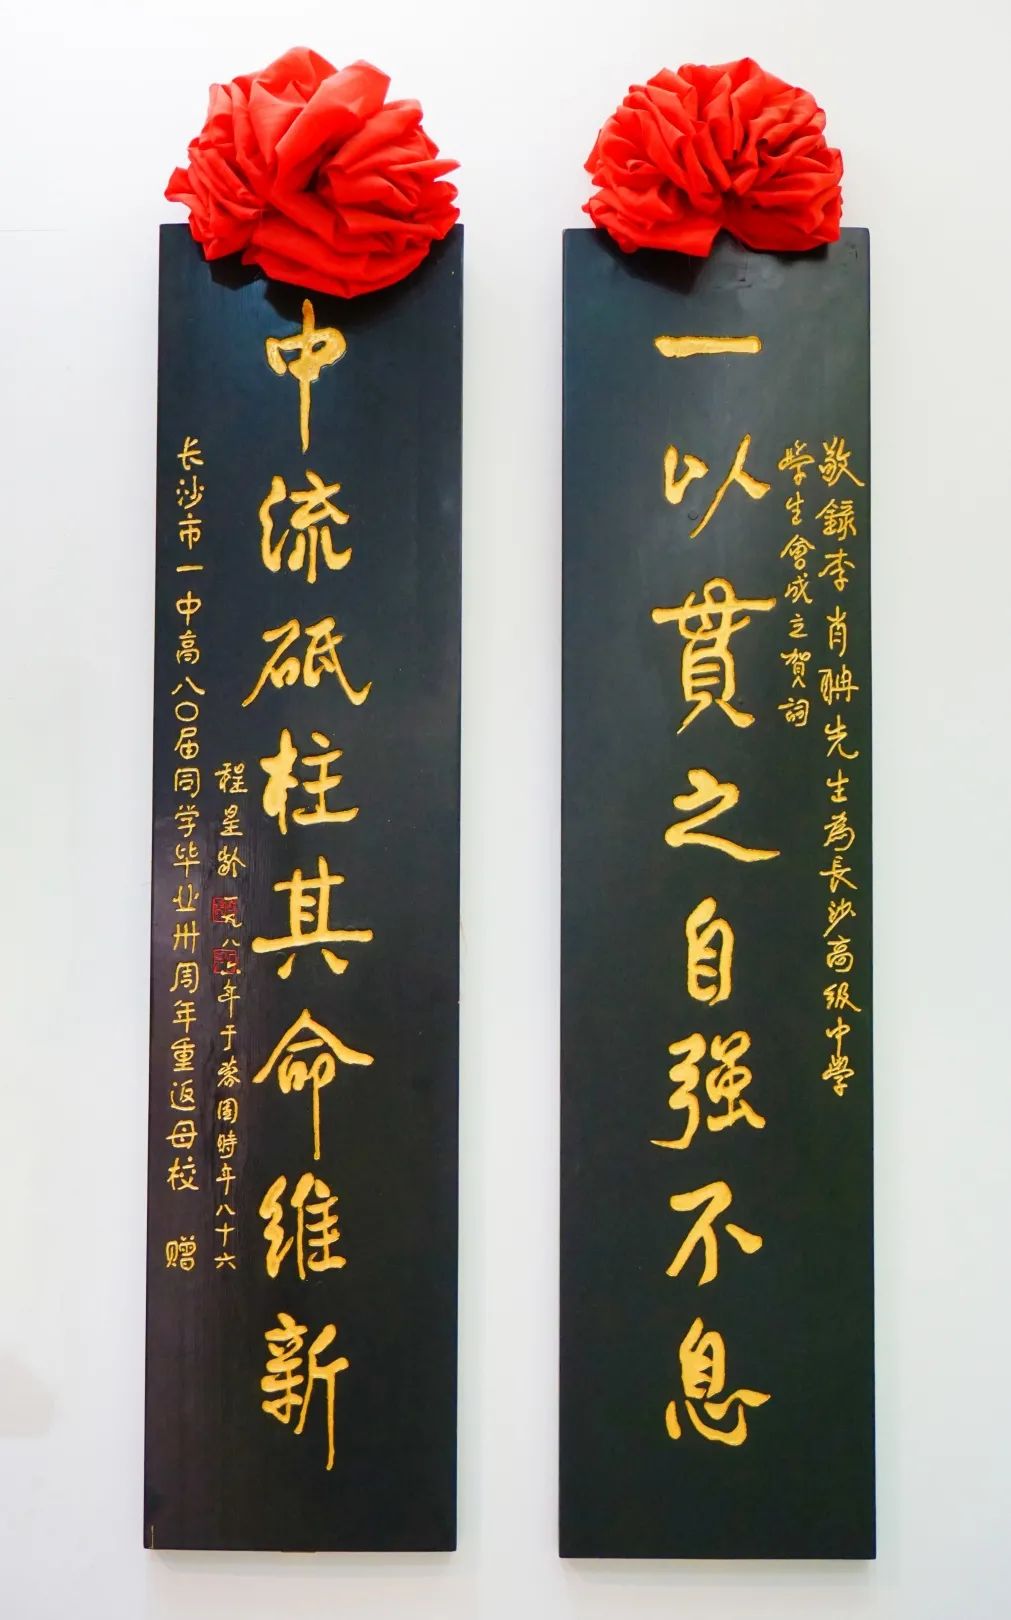 敬録李肖聃先生為長沙高级中學
學生會成立賀詞
一以貫之自强不息
中流砥柱其命维新
程星龄一九八六年于蓉園時年八十六
长沙市一中高八〇届同学毕业卅周年重返母校 赠